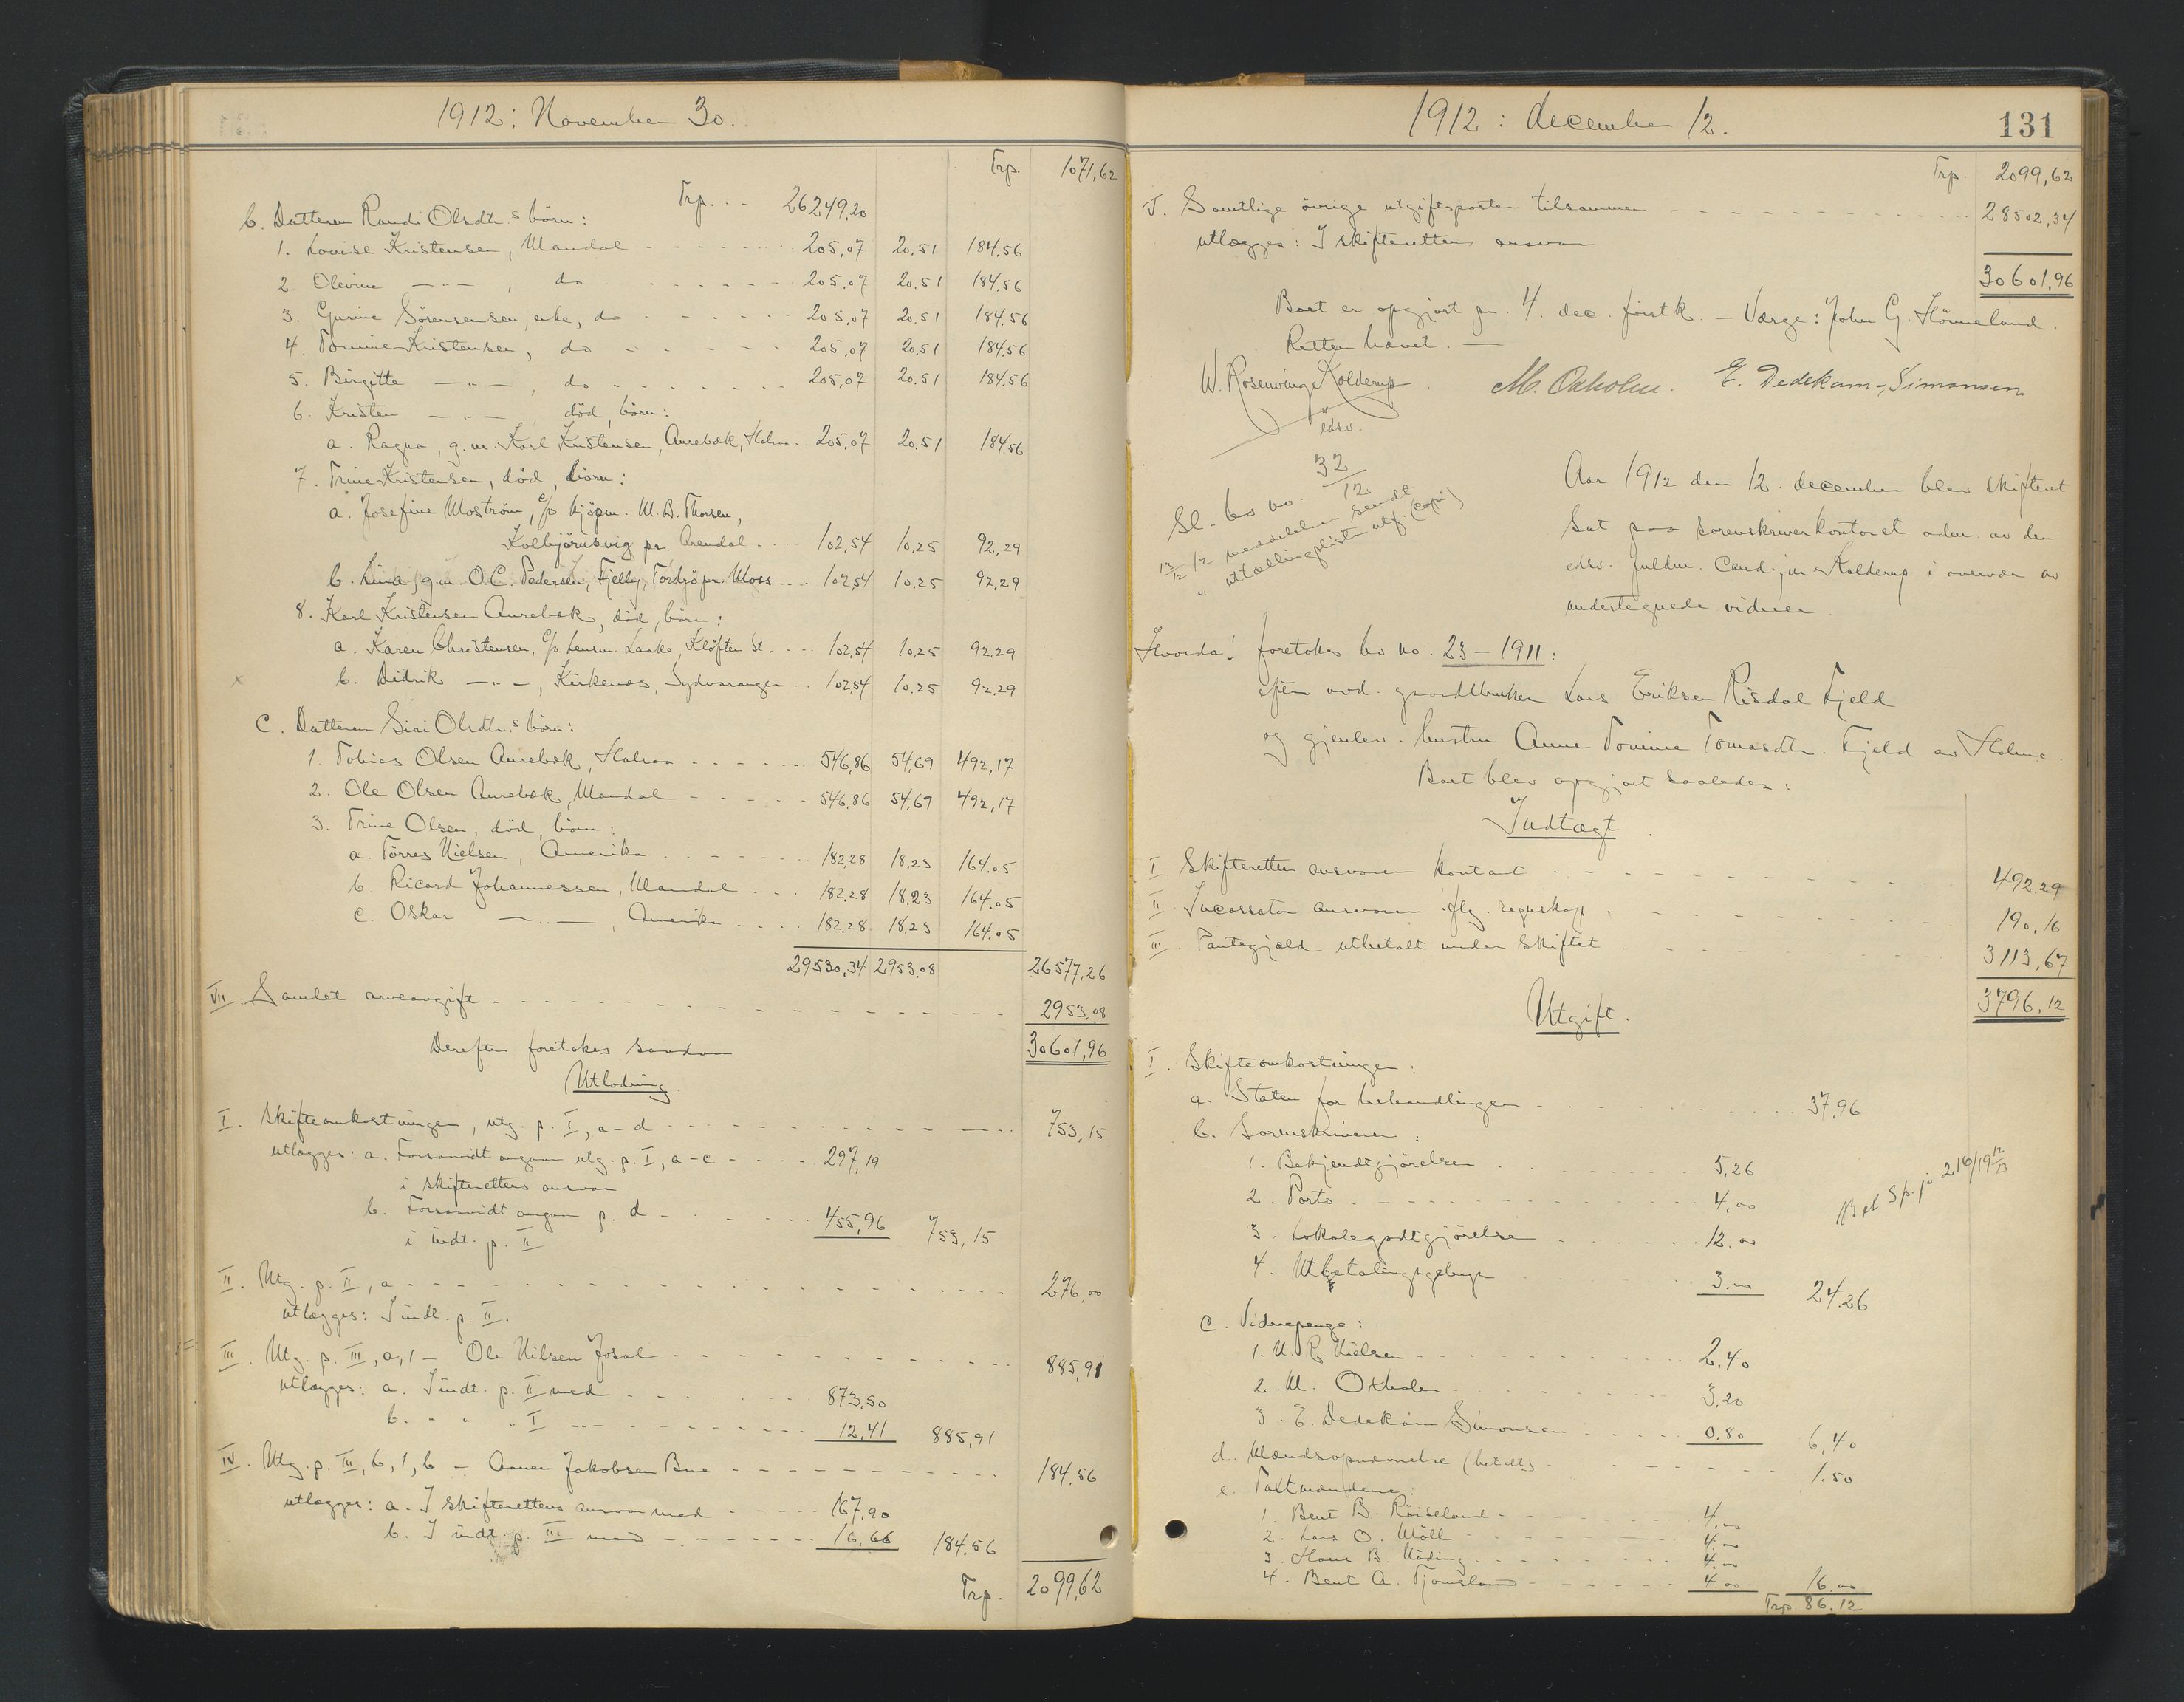 1912: November 30.
Trp. 1071,62
Trp. 26249,20
b. Datteren Randi Olsdtr.s börn:
1. Lovise Kristensen, Mandal 205,07 20,51 184,56
2. Olevine —"—, do 205,07 20,51 184,56
3. Gurine Sörensensen, enke, do 205,07 20,51 184,56
4. Tomine Kristensen, do 205,07 20,51 184,56
5. Birgitte —"—, do 205,07 20,51 184,56
6. Kristen —"— död, börn:
a. Ragna, g.m. Karl Kristensen, Aurebæk, Halsaa. 205,07 20,51 184,56
7. Trine Kristensen, död, börn:
a. Josefine Moström, c/o kjöpm. M.B. Thorsen,
Kolbjörnsvig pr. Arendal 102,54 10,25 92,29
b. Lina, g.m. O.C. Pedersen, Fjelly, Tordjö pr. Moss 102,54 10,25 92,29
8. Karl Kristensen Aurebæk, död, börn:
a. Karen Christensen, c/o Lensm. Laake, Klöften St. 102,54 10,25 92,29
x b. Didrik —"—, Kirkenes, Sydvaranger 102,54 10,25 92,29
c. Datteren Siri Olsdtr.s börn:
1. Tobias Olsen Aurebæk, Halsaa 546,86 54,69 492,17
2. Ole Olsen Aurebæk, Mandal 546,86 54,69 492,17
3. Trine Olsen, död, börn:
a. Törres Nielsen, Amerika 182,28 18,23 164,05
b. Ricard Johannessen, Mandal 182,28 18,23 164,05
c. Oskar —"—, Amerika 182,28 18,23 164,05
29530,34 2953,08 26577,26
VII. Samlet arveavgift 2953,08
30601,96
Derefter foretokes saadan
Utlodning.
I. Skifteomkostninger, utg. p. I, a-d 753,15
utlægges: a. Forsaavidt angaar utg. p. I, a-c 297,19
i skifterettens ansvar
b. Forsaavidt angaar p. d 455,96 753,15
i indt. p. II
II. Utg. p. II, a 276,00
utlægges: I indt. p. II.
III. Utg. p. III, a, 1 — Ole Nilsen Josal 885,91
utlægges: a. I indt. p. II med 873,50
b. " " " I — 12,41 885,91
IV. Utg. p. III, b, 1, b — Anne Jakobsen Bue 184,56
utlægges: a. I skifterettens ansvar med 167,90
b. I indt. p. III med 16,66 184,56
Trp. 2099,62
1912: december 12. 131
Trp. 2099,62
V. Samtlige övrige utgiftsposter tilsammen 28502,34
utlægges: I skifterettens ansvar
30601,96
Boet er opgjort pr. 4. dec. förstk. — Værge: John G. Hönneland.
Retten hævet. —
W. Rosenvinge Kolderup M. Oxholm. E. Dedekam-Simonsen
edsv.
Sl. bo no. 32/12
13/12 12 meddelelser sendt
" utlodningsliste utf. (copi)
Aar 1912 den 12. december blev skifteret
sat paa sorenskriverkontoret adm. av den
edsv. fuldm. Cand. jur. Kolderup i overvær av
undertegnede vidner
Hvorda: foretokes bo no. 23 – 1911:
efter avd. gaardbruker Lars Eriksen Risdal Fjeld
og gjenlev. hustru Anne Tomine Tomasdtr. Fjeld av Holme.
Boet blev opgjort saaledes:
Indtægt.
I. Skifteretten ansvarer kontant 492,29
II. Incassator ansvarer iflg. regnskap 190,16
III. Pantegjæld utbetalt under skiftet 3113,67
3796,12
Utgift.
I. Skifteomkostninger:
a. Staten for behandlingen 37,96
b. Sorenskriveren:
1. Bekjendtgjörelsen 5,26
2. Porto 4,00
3. Lokalegodtgjörelse 12.00
4. Utbetalingsgebyr 3.00 24,26
Bet Sp. j. 216/1912/13
c. Vidnepenge:
1. N. R. Nielsen 2,40
2. M. Oxholm 3,20
3. E. Dedekam Simonsen 0,80 6,40
d. Mændsopnævnelse (betalt) 1.50
e. Taxtmændene:
1. Bent B. Röiseland 4,00
2. Lars O. Möll 4.00
3. Hans B. Uöding 4.00
4. Bent A. Tjomsland 4.00 16.00
Trp. 86,12